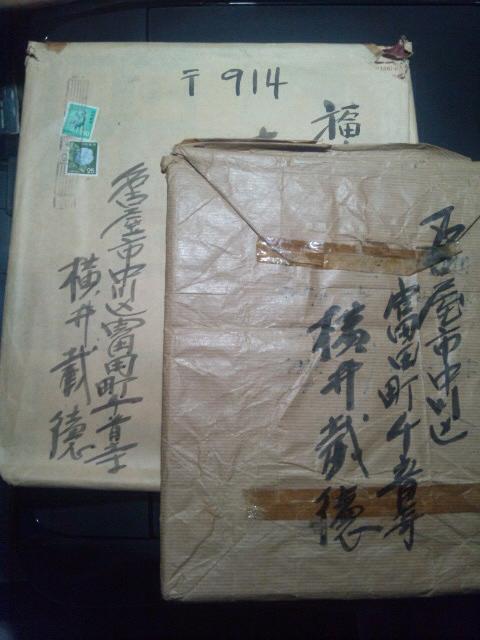 〒914
福
名古屋市中川区富田町千音寺
横井蔵徳
名古屋市中川区
富田町千音寺
横井蔵徳